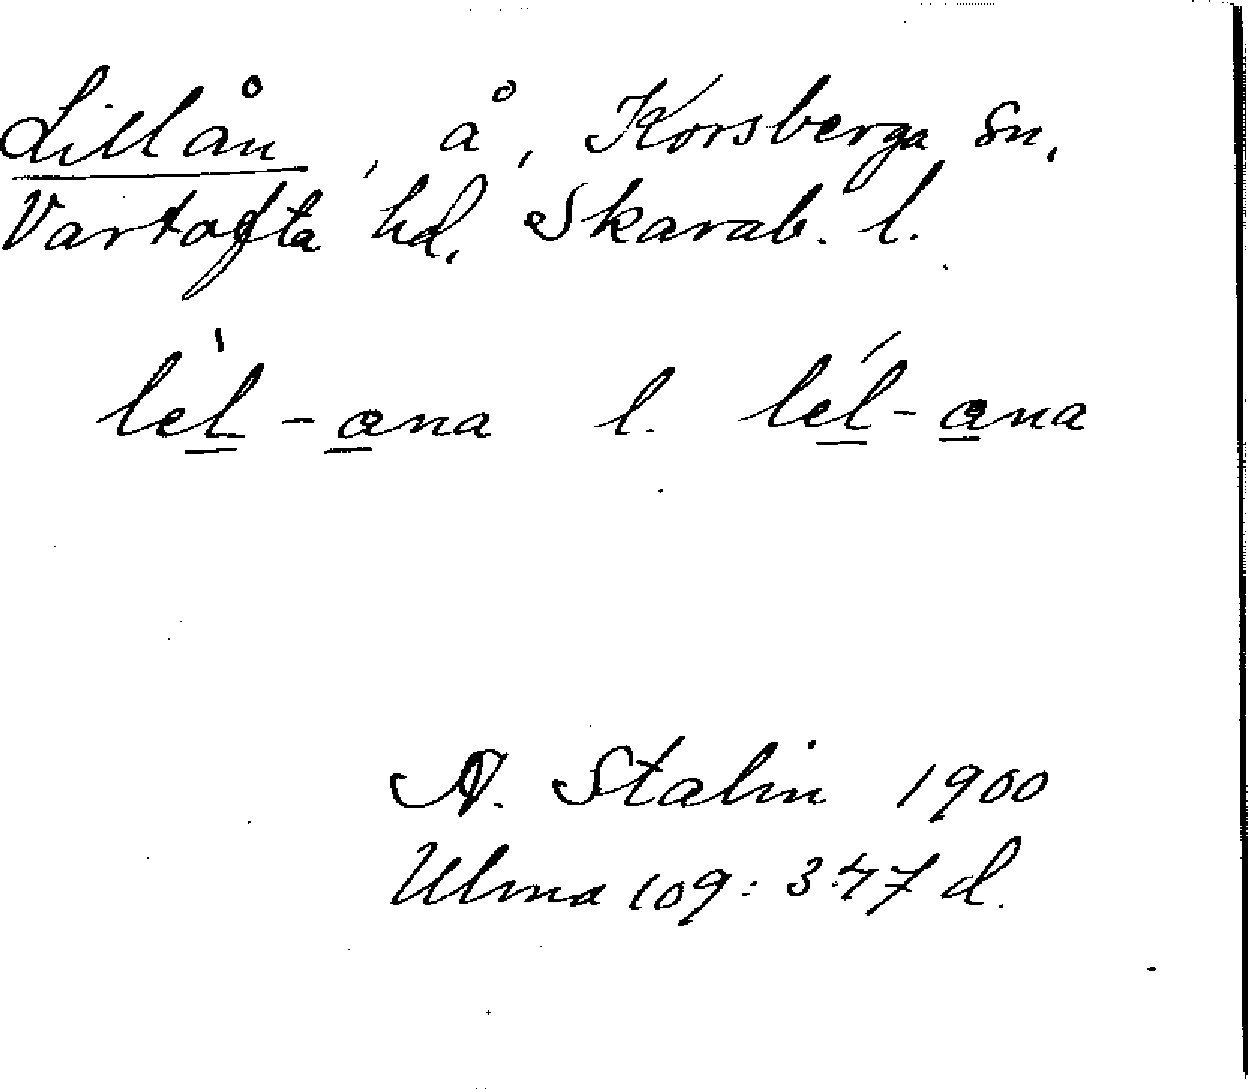 Lillån, å, Korsberga sn,
Vartofta hd, Skarab. l.
lèl-ana l. lél-ana
A. Stalin 1900
Ulma 109: 347 d.